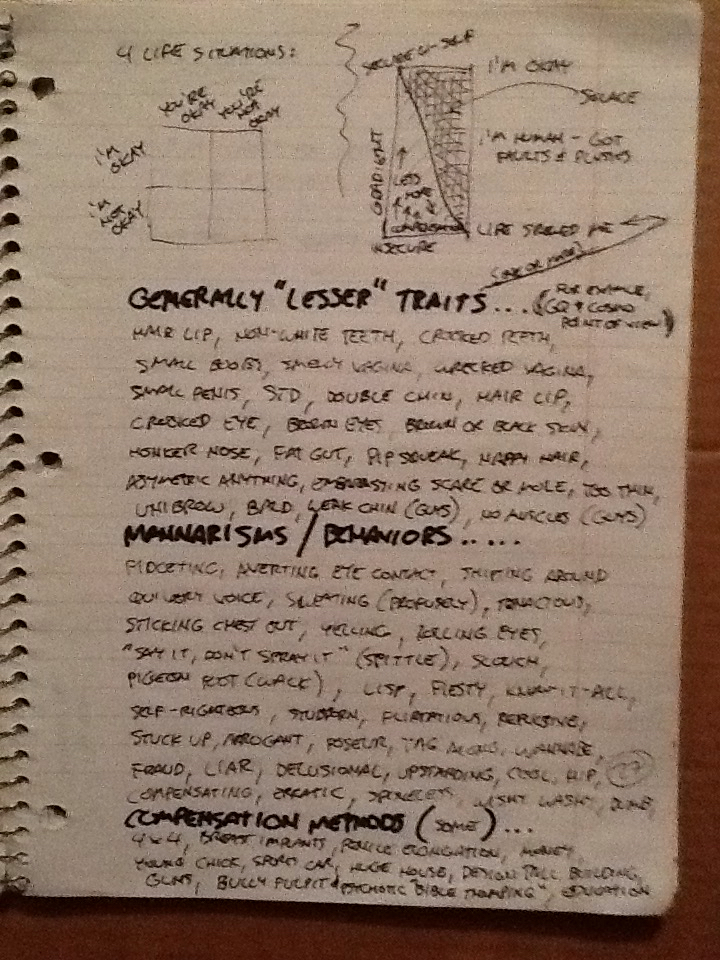 4 LIFE SITUATIONS:
YOU'RE OKAY
YOU'RE NOT OKAY
I'M OKAY
I'M NOT OKAY
SECURE W/ SELF
I'M OKAY
SOLACE
I'M HUMAN - GOT
FAULTS & PLUSSES
GRADIENT
LESS
MORE
COMPENSATION
INSECURE
LIFE SCREWED ME
(ONE OR MORE)
GENERALLY "LESSER" TRAITS... (FOR EXAMPLE,
GQ & COSMO
POINT OF VIEW)
HAIR LIP, NON-WHITE TEETH, CROOKED TEETH,
SMALL BOOBS, SMELLY VAGINA, WRECKED VAGINA,
SMALL PENIS, STD, DOUBLE CHIN, HAIR LIP,
CROOKED EYE, BROWN EYES, BROWN OR BLACK SKIN,
HONKER NOSE, FAT GUT, PIP SQUEAK, NAPPY HAIR,
ASYMETRIC ANYTHING, SCARE OR MOLE, TOO THIN,
UNIBROW, BALD, WEAK CHIN (GUYS), NO MUSCLES (GUYS)
MANNARISMS / BEHAVIORS.....
FIDGETING, AVERTING EYE CONTACT, SHIFTING AROUND
QUIVERY VOICE, SWEATING (PROFUSELY), TENACIOUS,
STICKING CHEST OUT, YELLING, ROLLING EYES,
"SAY IT, DON'T SPRAY IT" (SPITTLE), SLOUCH,
PIGEON FOOT (WALK), LISP, FIESTY, KNOW-IT-ALL,
SELF-RIGHTEOUS, STUBBORN, FLIRTATIOUS,
STUCK UP, ARROGANT, POSEUR, TAG ALONG, WANNABE,
FRAUD, LIAR, DELUSIONAL, UPSTANDING, COOL, HIP, 27
COMPENSATING, ERRATIC, SPINELESS, WISHY WASHY, DUMB,
COMPENSATION METHODS (SOME)...
4x4, BREAST IMPLANTS, PENILE ELONGATION, MONEY,
YOUNG CHICK, SPORTS CAR, HUGE HOUSE, DESIGN TALL BUILDING,
GUNS, BULLY PULPIT & PSYCHOTIC "BIBLE THUMPING", EDUCATION